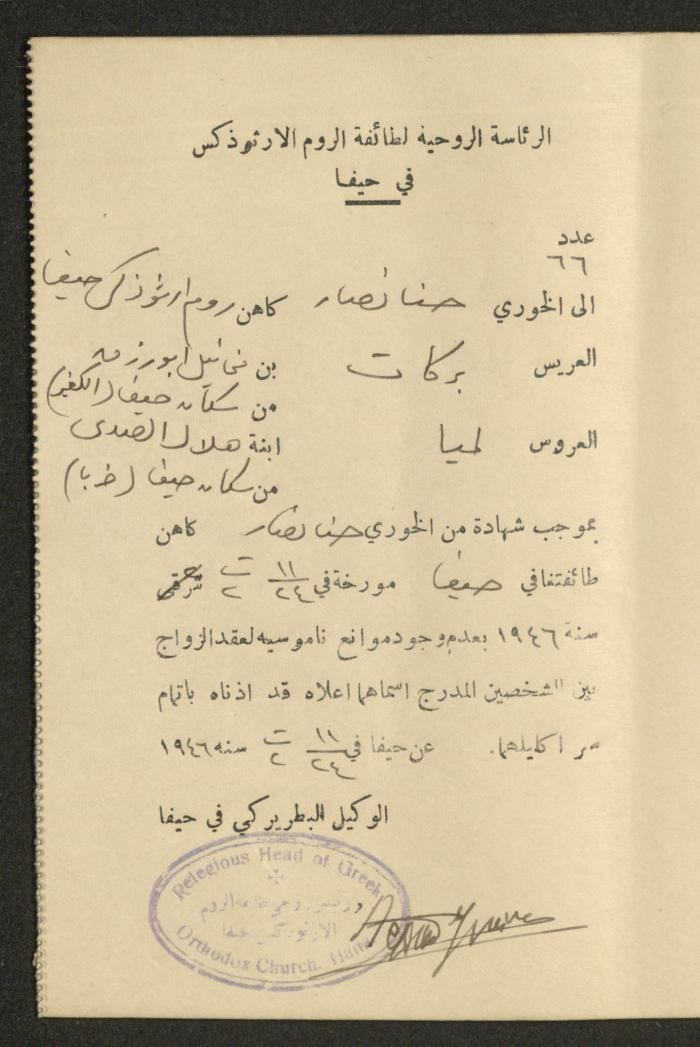 الرئاسة الروحية لطائفة الروم الارثوذكس
في حيفا
عدد
٦٦
الى الخوري حنا نصار كاهن روم ارثوذكس حيفا
العريس بركات بن نخائيل ابورزق
من سكان حيفا (الكفير)
العروس لميا ابنة هلال الصدى
من سكان حيفا (خربا)
بموجب شهادة من الخوري حنا نصار كاهن
طائفتنا في حيفا مورخة في ١١/٢٤ ت٢ شرقي
سنة ١٩٤٦ بعدم وجود موانع ناموسيه لعقد الزواج
بين الشخصين المدرج اسماهما اعلاه قد اذناه باتمام
سر اكليلهما. عن حيفا في ١١/٢٤ ت٢ سنه ١٩٤٦
الوكيل البطريركي في حيفا
Relegious Head of Greek
الروم
الارثوذكس حيفا
Orthodox Church. Haifa